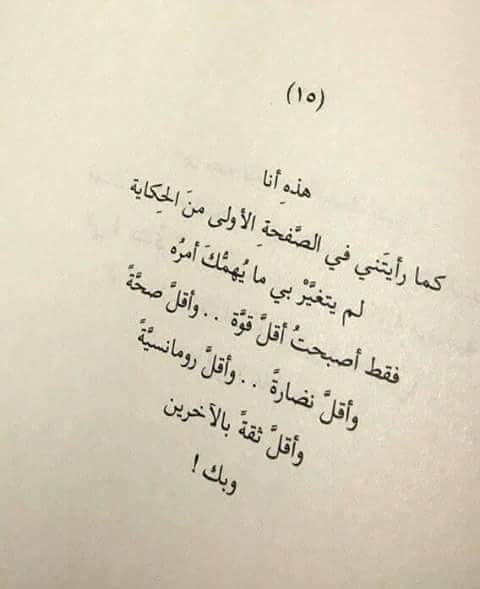 (١٥)
هذهِ أنا
كما رأيتَني في الصَّفحةِ الأولى منَ الحِكاية
لم يتغيَّرْ بي ما يُهمُّكَ أمرُه
فقط أصبحتُ أقلَّ قوَّة . . وأقلَّ صحَّةً
وأقلَّ نضارةً . . وأقلَّ رومانسيَّةً
وأقلَّ ثقةً بالآخرين
وبك !